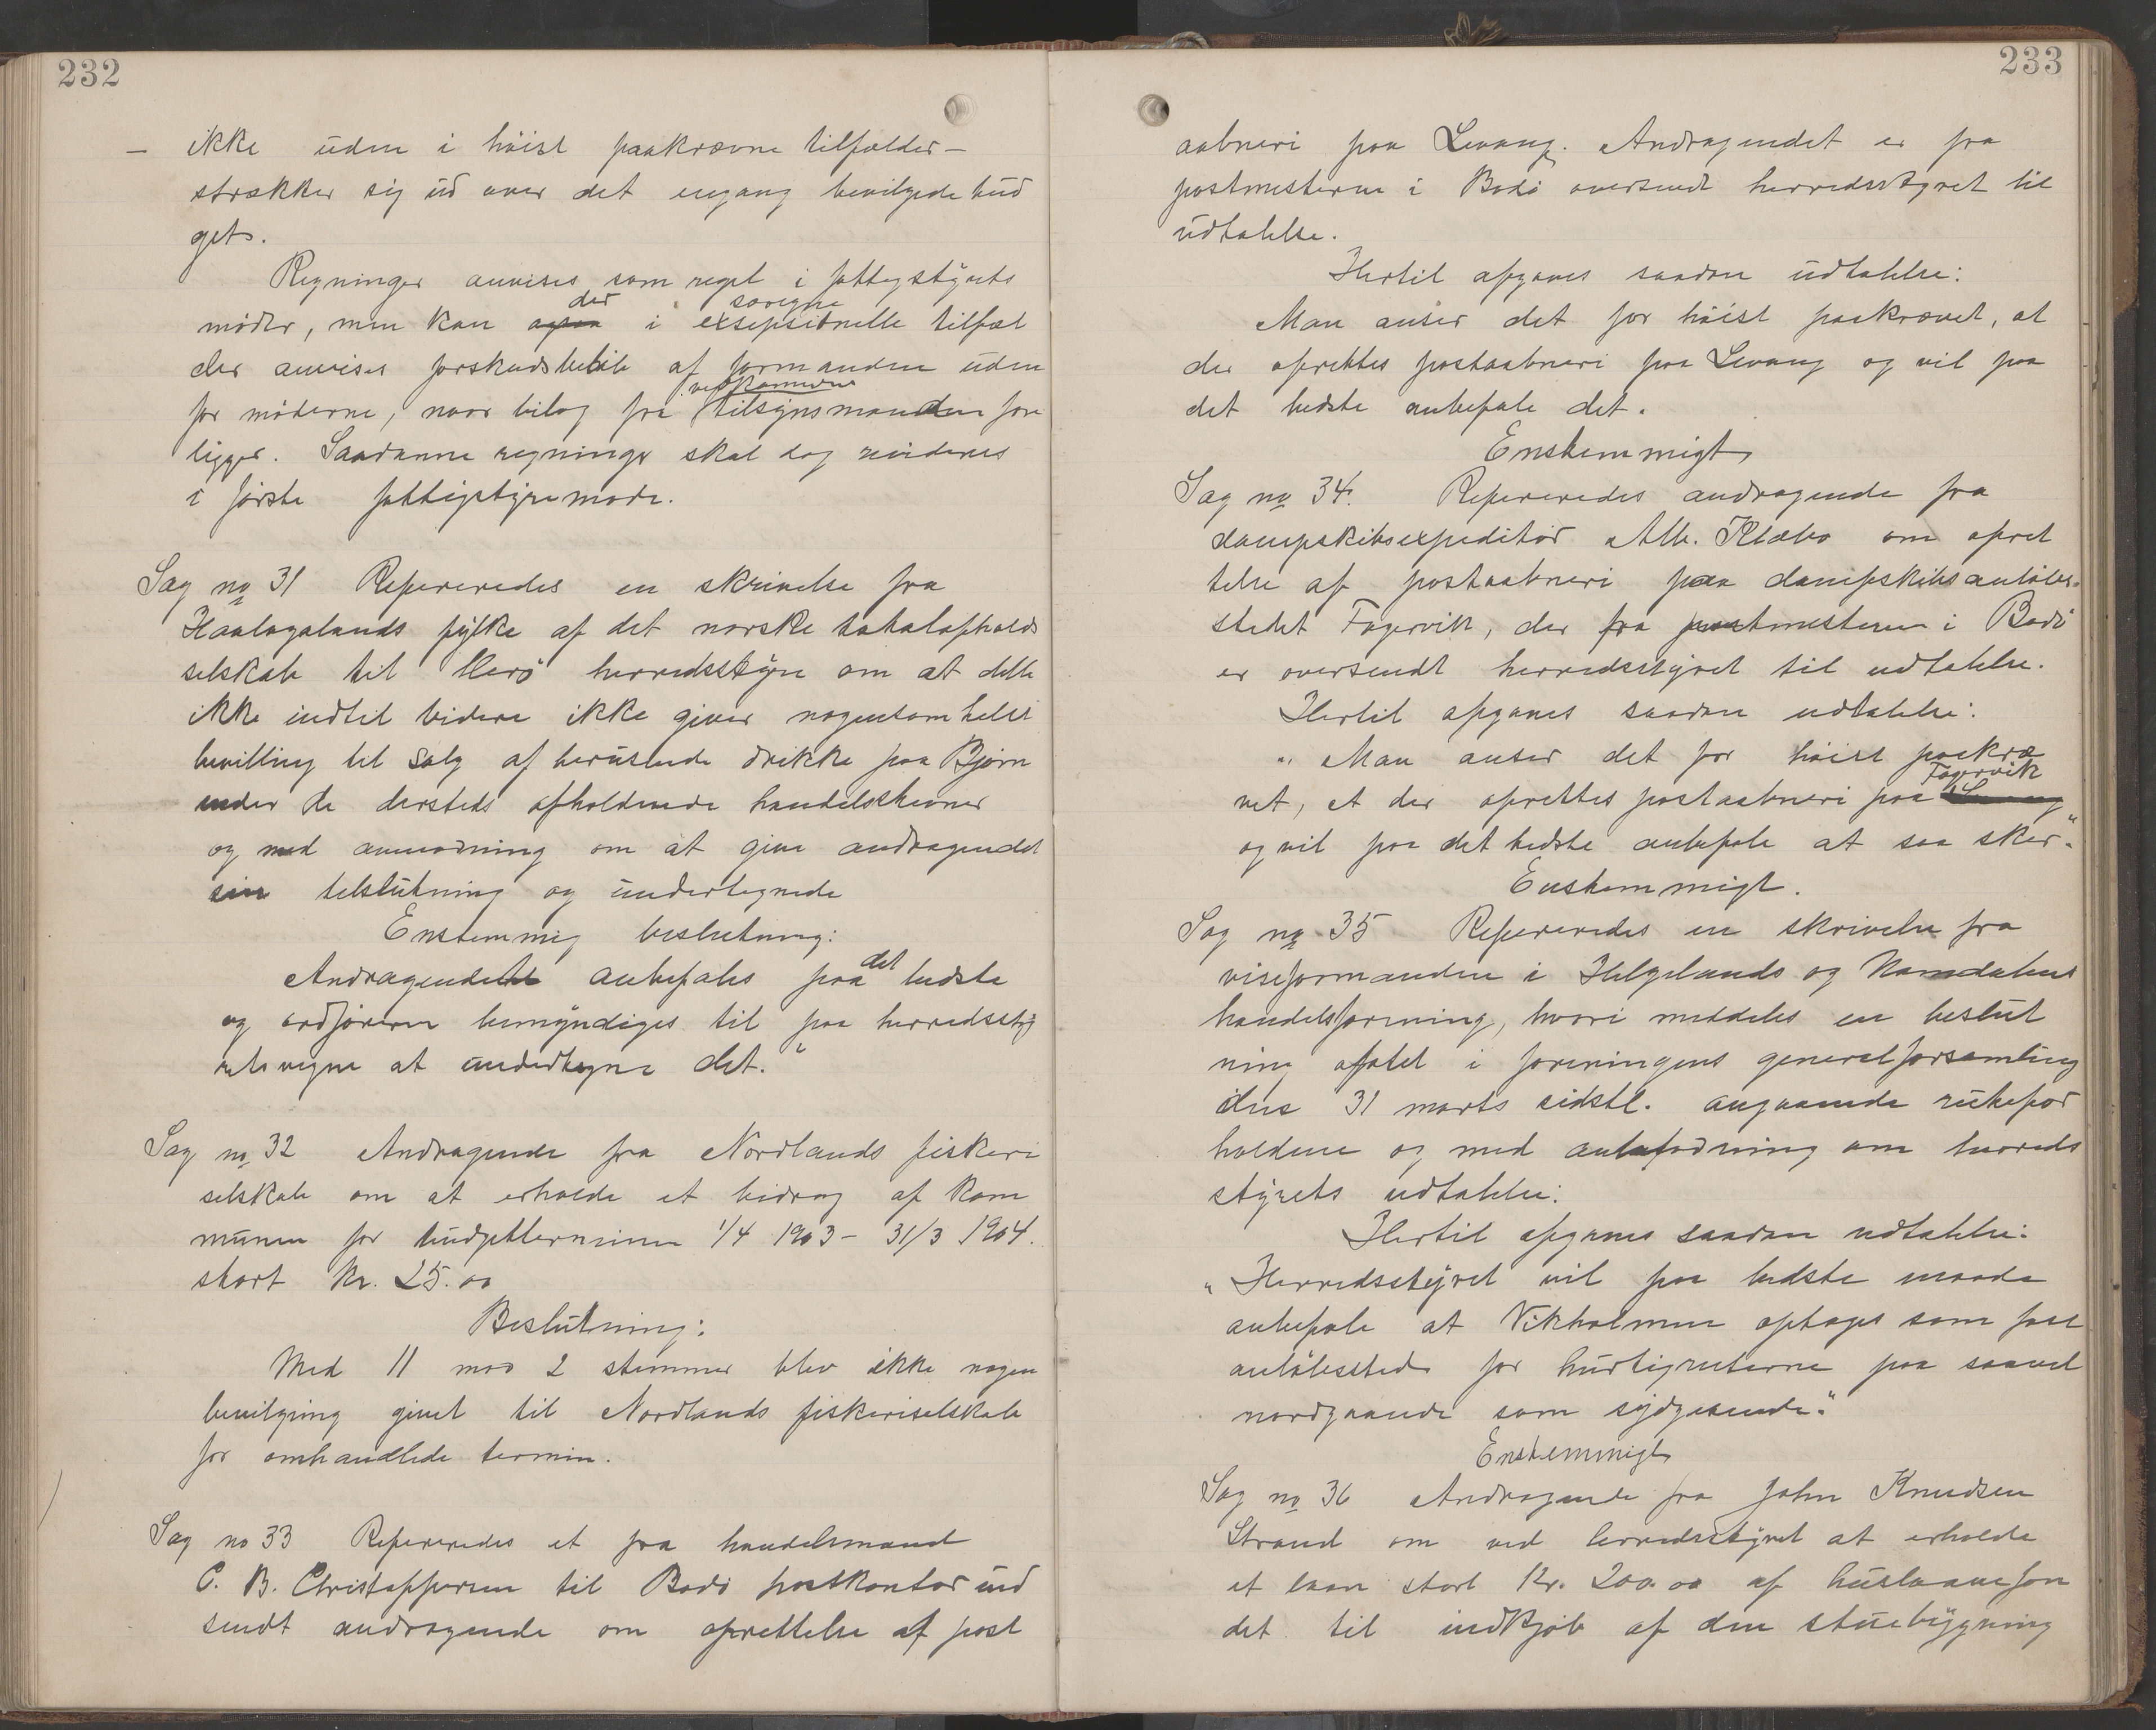 232
— ikke uden i høist paakrævne tilfælder —
strækker sig ud over det engang bevilgede bud
get.
Regninger anvises som regel i fattigstyrets
der særegne
møder, men kan ogsaa i exsepsionelle tilfæl
der anvises forskudsbeløb af formanden uden
vedkommende
for møderne, naar bilag fra tilsynsmanden fore
ligger. Saadanne regninger skal dog
i første fattigstyremøde.
Sag no 31 Refereredes en skrivelse fra
Haalogalands fylke af det norske totalafholds
selskab til Herø herredsstyre om at dette
ikke indtil videre ikke giver nogensomhelst
bevilling til salg af berusende drikke paa Bjørn
under de dersteds afholdende handelsstevner
og med anmodning om at give andragendet
sin tilslutning og undertegnede
Enstemmig beslutning:
det
Andragendet anbefales paa bedste
og ordføreren bemyndiges til paa herredssty
rets vegne at undertegne det."
Sag no 32 Andragende fra Nordlands fiskeri
selskab om at erholde et bidrag af kom
munen for budgetterminen 1/4 1903 - 31/3 1904.
stort kr. 25.00
Beslutning:
Med 11 mod 2 stemmer blev ikke nogen
bevilgning givet til Nordlands fiskeriselskab
for omhandlede termin.
Sag no 33 Refereredes et fra handelsmand
C. B. Christophersen til Bodø postkontor ind
sendt andragende om oprettelse af post
233
aabneri paa Levang. Andragendet er fra
postmesteren i Bodø oversendt herredsstyret til
udtalelse.
Hertil afgaves saadan udtalelse:
Man anser det for høist paakrævet, at
der oprettes postaabneri paa Levang og vil paa
det bedste anbefale det.
Enstemmigt
Sag no 34. Refereredes andragende fra
dampskibsexpeditør Alb. Klæbo om opret
telse af postaabneri paa dampskibsanløbs-
stedet Fagervik, der fra postmesteren i Bodø
er oversendt herredsstyret til udtalelse.
Hertil afgaves saadan udtalelse:
„Man anser det for høist paakræ
Fagervik
vet, at der oprettes postaabneri paa Levang
og vil paa det bedste anbefale at saa sker."
Enstemmigt.
Sag no 35 Refereredes en skrivelse fra
viseformanden i Helgelands og Namdalens
handelsforening, hvori meddeles en beslut
ning afatet i foreningens generalforsamling
den 31 marts sidstl. angaaende rutefor
holdene og med anmodning om herreds
styrets udtalelse:
Hertil afgaves saadan udtalelse:
„Herredsstyret vil paa bedste maade
anbefale at Vikholmen optages som fast
anløbssted for hurtigruterne paa saavel
nordgaaende som sydgaaende."
Enstemmigt
Sag no 36 Andragende fra John Knudsen
Strand om ved herredsstyret at erholde
et laan stort Kr. 200.00 af huslaanefon
det til indkjøb af den stuebygning